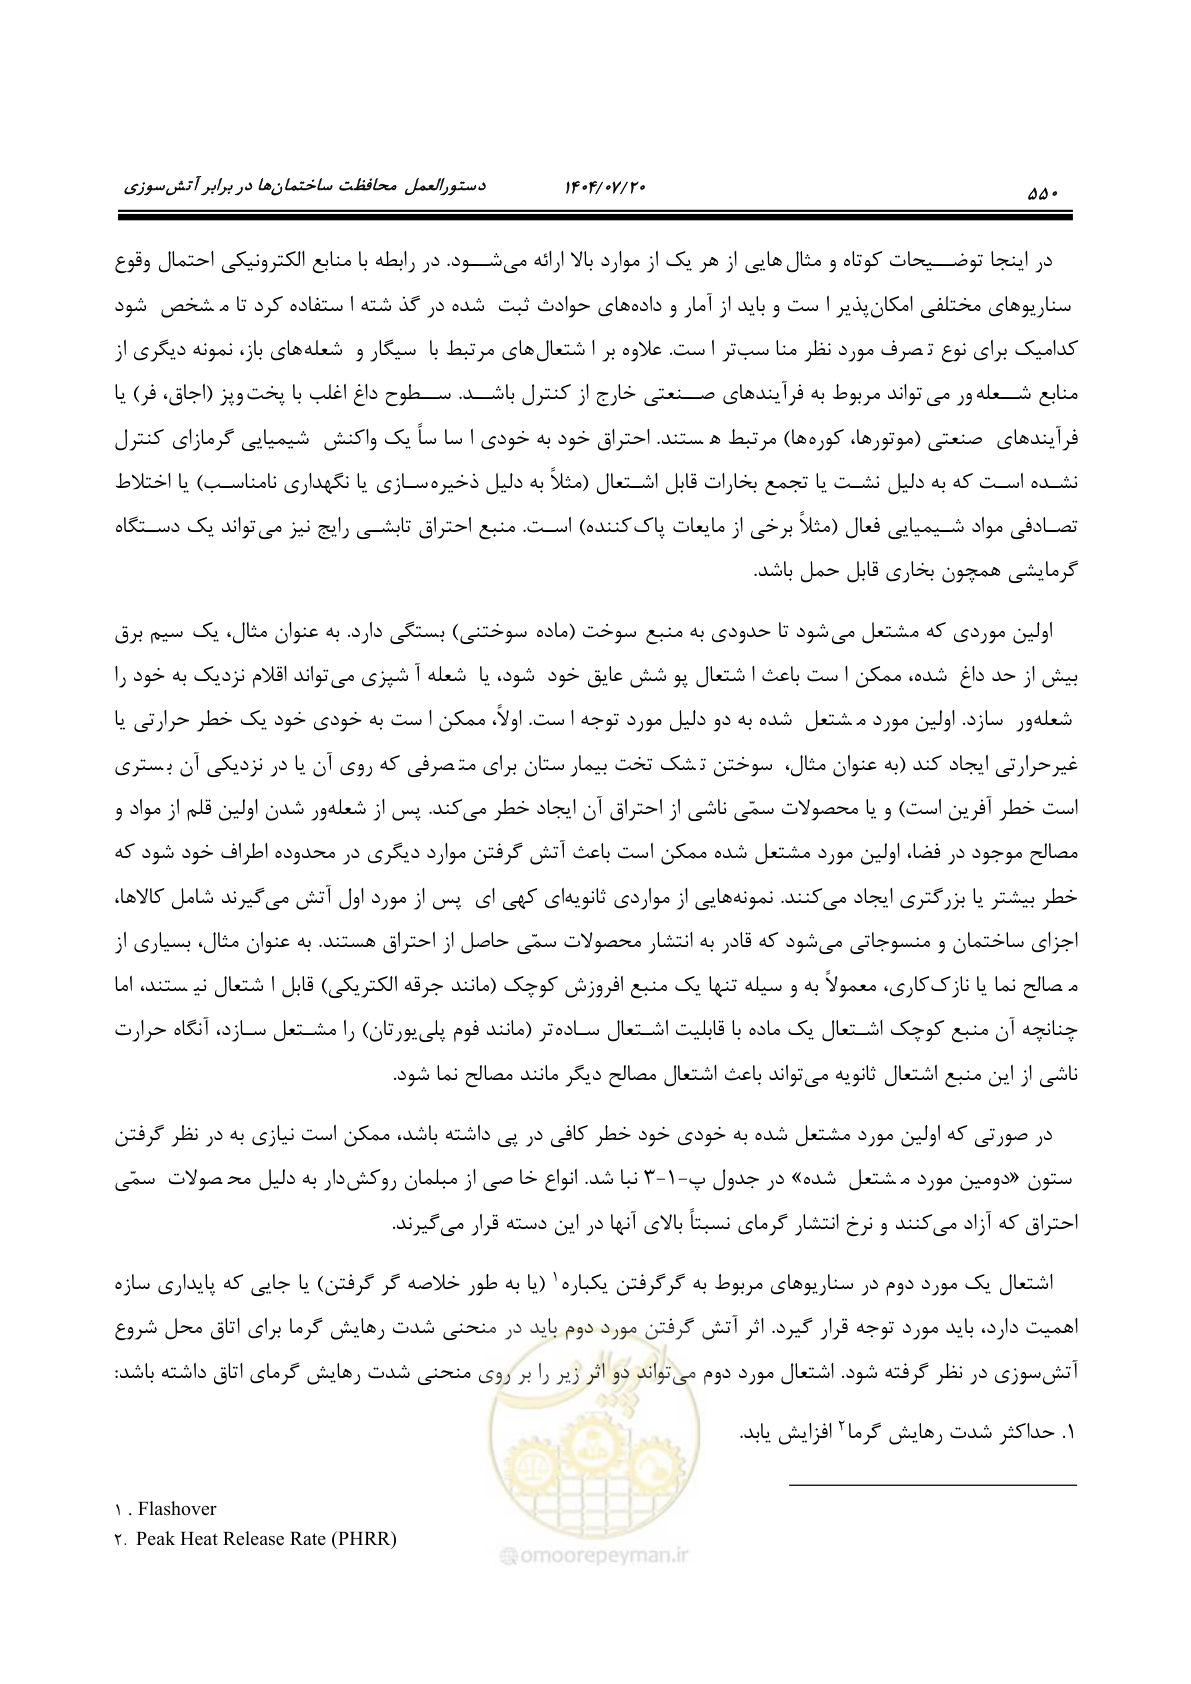 ۵۵۰ ۱۴۰۴/۰۷/۲۰ دستورالعمل محافظت ساختمان‌ها در برابر آتش‌سوزی
در اینجا توضیحات کوتاه و مثال‌هایی از هر یک از موارد بالا ارائه می‌شود. در رابطه با منابع الکترونیکی احتمال وقوع
سناریوهای مختلفی امکان‌پذیر است و باید از آمار و داده‌های حوادث ثبت شده در گذشته استفاده کرد تا مشخص شود
کدامیک برای نوع تصرف مورد نظر مناسب‌تر است. علاوه بر اشتعال‌های مرتبط با سیگار و شعله‌های باز، نمونه دیگری از
منابع شعله‌ور می‌تواند مربوط به فرآیندهای صنعتی خارج از کنترل باشد. سطوح داغ اغلب با پخت‌وپز (اجاق، فر) یا
فرآیندهای صنعتی (موتورها، کوره‌ها) مرتبط هستند. احتراق خود به خودی اساساً یک واکنش شیمیایی گرمازای کنترل
نشده است که به دلیل نشت یا تجمع بخارات قابل اشتعال (مثلاً به دلیل ذخیره‌سازی یا نگهداری نامناسب) یا اختلاط
تصادفی مواد شیمیایی فعال (مثلاً برخی از مایعات پاک‌کننده) است. منبع احتراق تابشی رایج نیز می‌تواند یک دستگاه
گرمایشی همچون بخاری قابل حمل باشد.
اولین موردی که مشتعل می‌شود تا حدودی به منبع سوخت (ماده سوختنی) بستگی دارد. به عنوان مثال، یک سیم برق
بیش از حد داغ شده، ممکن است باعث اشتعال پوشش عایق خود شود، یا شعله آشپزی می‌تواند اقلام نزدیک به خود را
شعله‌ور سازد. اولین مورد مشتعل شده به دو دلیل مورد توجه است. اولاً، ممکن است به خودی خود یک خطر حرارتی یا
غیرحرارتی ایجاد کند (به عنوان مثال، سوختن تشک تخت بیمارستان برای متصرفی که روی آن یا در نزدیکی آن بستری
است خطر آفرین است) و یا محصولات سمّی ناشی از احتراق آن ایجاد خطر می‌کند. پس از شعله‌ور شدن اولین قلم از مواد و
مصالح موجود در فضا، اولین مورد مشتعل شده ممکن است باعث آتش گرفتن موارد دیگری در محدوده اطراف خود شود که
خطر بیشتر یا بزرگتری ایجاد می‌کنند. نمونه‌هایی از مواردی ثانویه‌ای کهی ای پس از مورد اول آتش می‌گیرند شامل کالاها،
اجزای ساختمان و منسوجاتی می‌شود که قادر به انتشار محصولات سمّی حاصل از احتراق هستند. به عنوان مثال، بسیاری از
مصالح نما یا نازک‌کاری، معمولاً به وسیله تنها یک منبع افروزش کوچک (مانند جرقه الکتریکی) قابل اشتعال نیستند، اما
چنانچه آن منبع کوچک اشتعال یک ماده با قابلیت اشتعال ساده‌تر (مانند فوم پلی‌یورتان) را مشتعل سازد، آنگاه حرارت
ناشی از این منبع اشتعال ثانویه می‌تواند باعث اشتعال مصالح دیگر مانند مصالح نما شود.
در صورتی که اولین مورد مشتعل شده به خودی خود خطر کافی در پی داشته باشد، ممکن است نیازی به در نظر گرفتن
ستون «دومین مورد مشتعل شده» در جدول پ-۱-۳ نباشد. انواع خاصی از مبلمان روکش‌دار به دلیل محصولات سمّی
احتراق که آزاد می‌کنند و نرخ انتشار گرمای نسبتاً بالای آنها در این دسته قرار می‌گیرند.
اشتعال یک مورد دوم در سناریوهای مربوط به گرگرفتن یکباره۱ (یا به طور خلاصه گر گرفتن) یا جایی که پایداری سازه
اهمیت دارد، باید مورد توجه قرار گیرد. اثر آتش گرفتن مورد دوم باید در منحنی شدت رهایش گرما برای اتاق محل شروع
آتش‌سوزی در نظر گرفته شود. اشتعال مورد دوم می‌تواند دو اثر زیر را بر روی منحنی شدت رهایش گرمای اتاق داشته باشد:
۱. حداکثر شدت رهایش گرما۲ افزایش یابد.
۱ . Flashover
۲. Peak Heat Release Rate (PHRR)
@omoorepeyman.ir